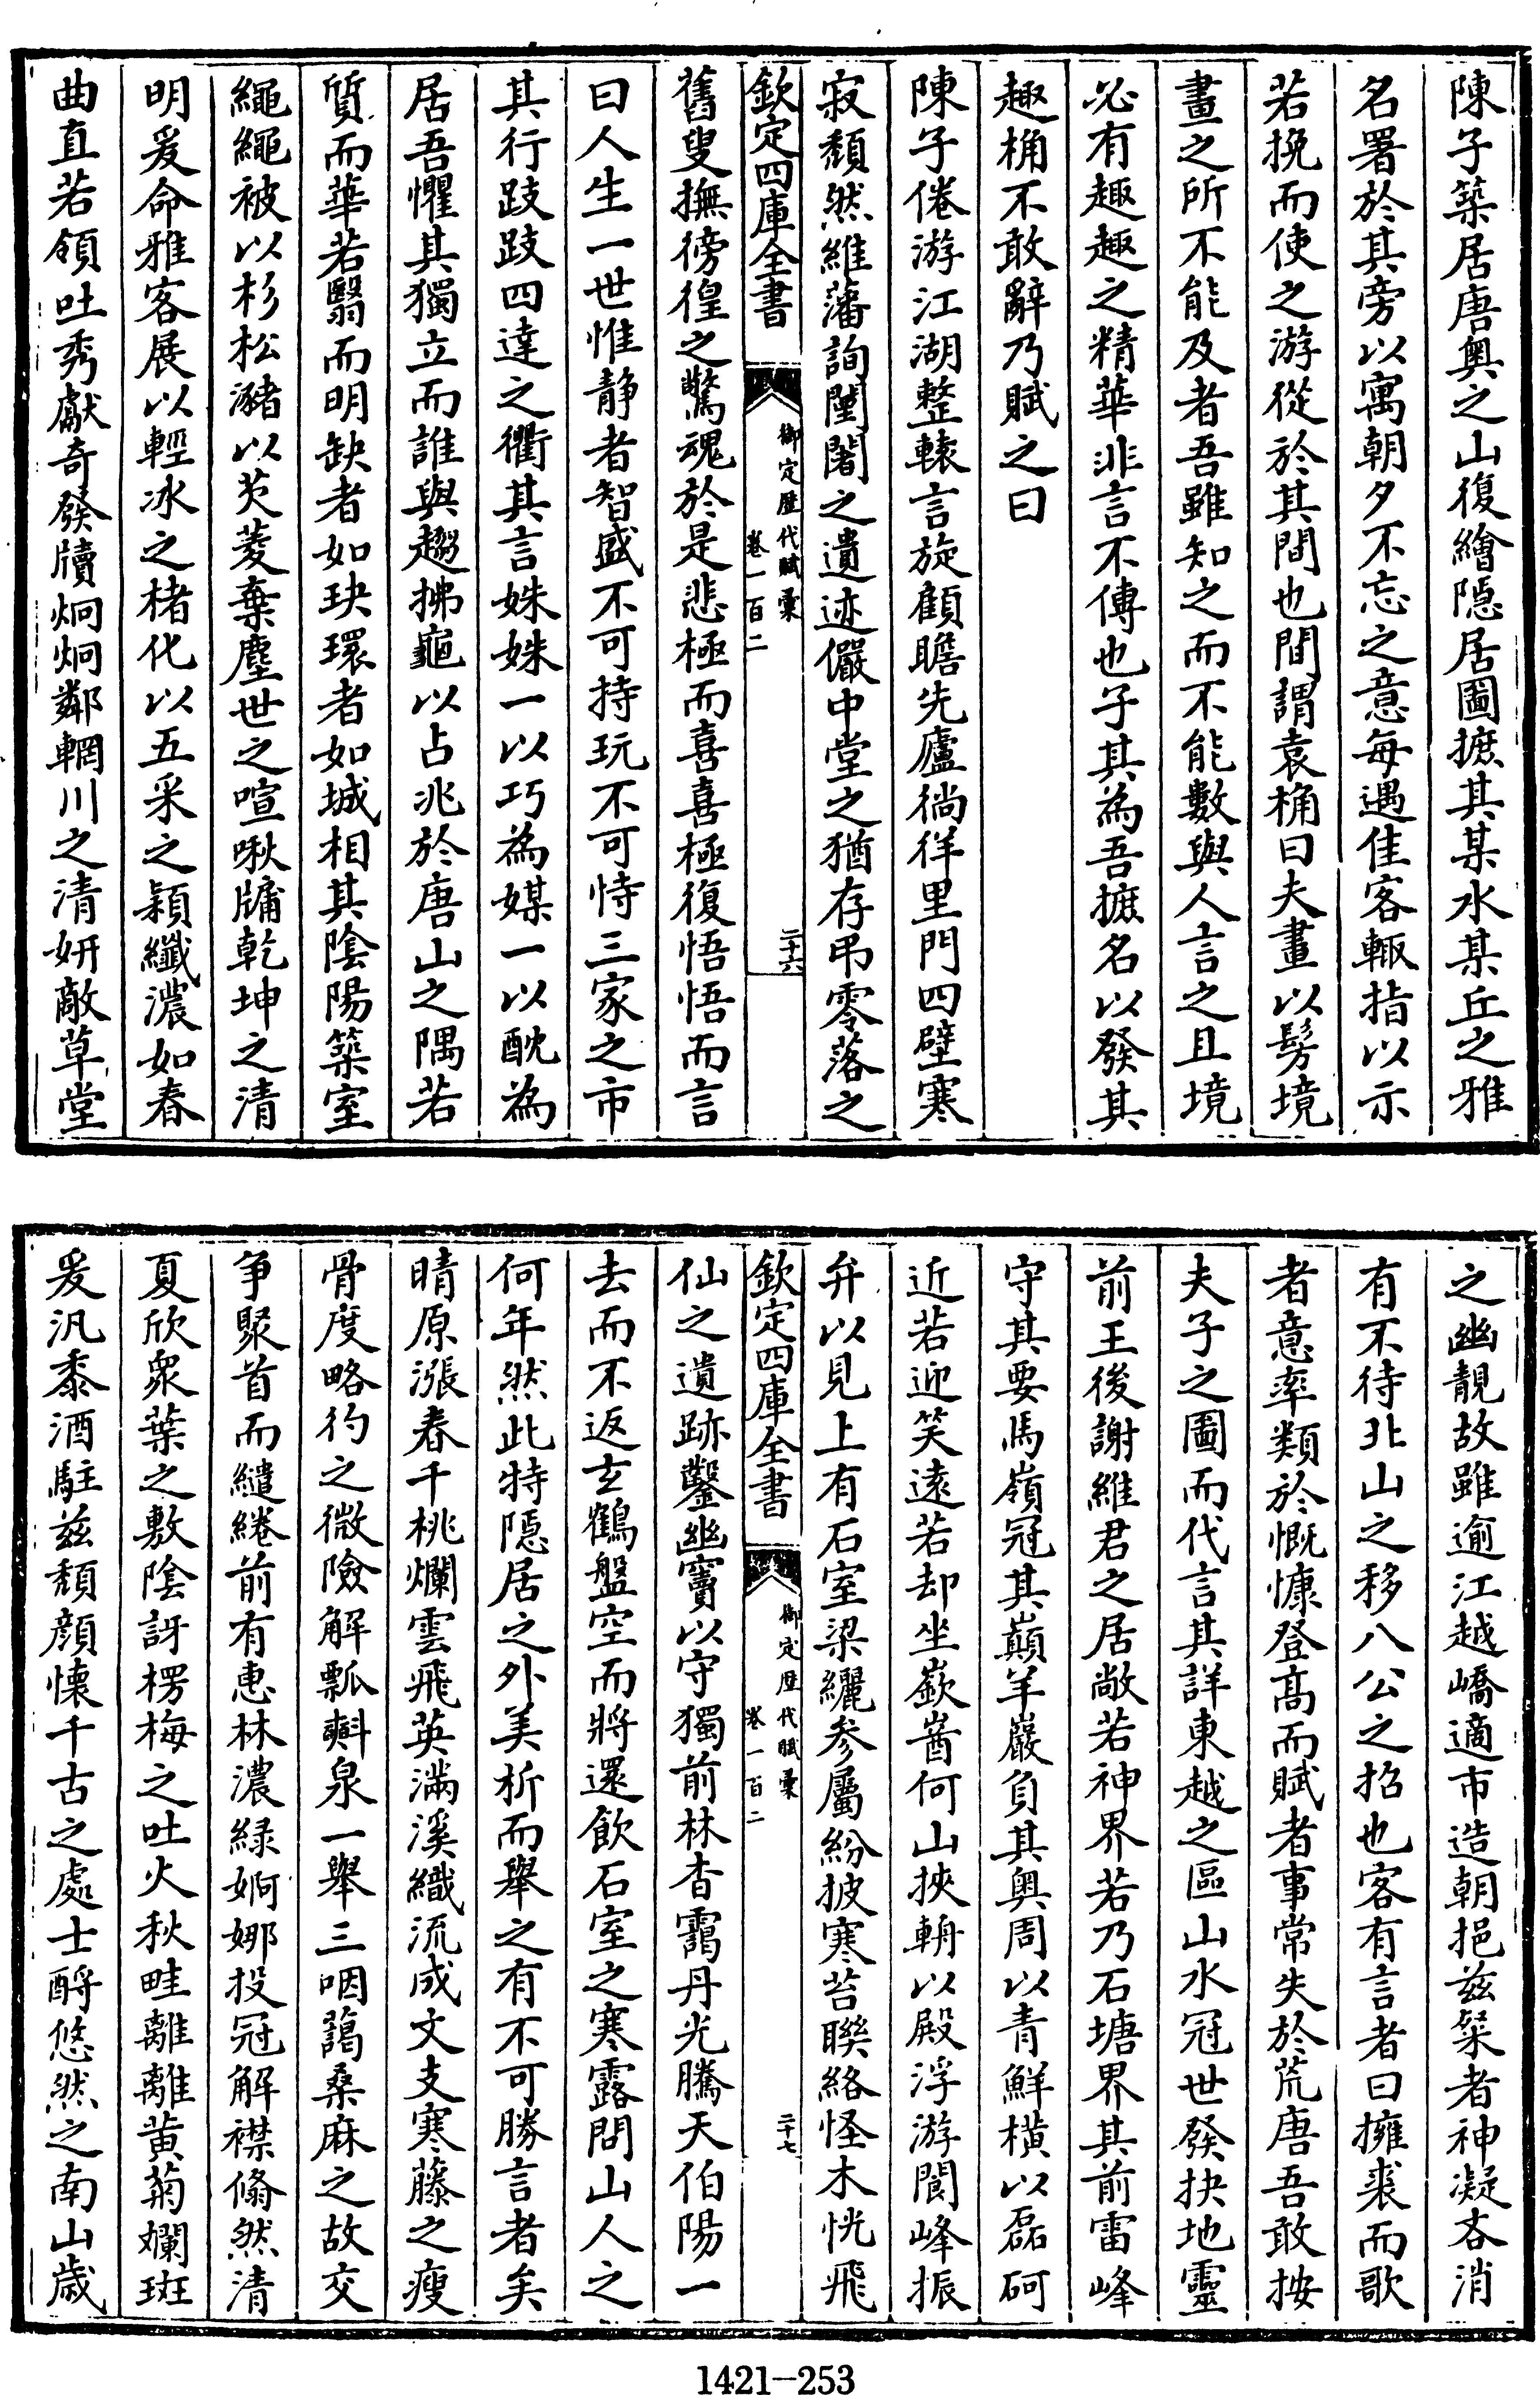 陳子築居唐奥之山復繪隱居圖摭其某水某丘之雅
名署於其旁以寓朝夕不忘之意每遇佳客輙指以示
若挽而使之游從於其間也間謂袁桷曰夫畫以髣境
畫之所不能及者吾雖知之而不能數與人言之且境
必有趣趣之精華非言不傳也子其為吾摭名以發其
趣桷不敢辭乃賦之曰
陳子倦游江湖整轅言旋顧瞻先廬徜徉里門四壁寒
寂頽然維藩詢闉闍之遺迹儼中堂之猶存弔零落之
欽定四庫全書
御定歴代賦彙
卷一百二
二十六
舊叟撫徬徨之驚魂於是悲極而喜喜極復悟悟而言
曰人生一世惟静者智盛不可持玩不可恃三家之市
其行跂跂四達之衢其言姝姝一以巧為媒一以酖為
居吾懼其獨立而誰與趨拂龜以占兆於唐山之隅若
質而華若翳而明缺者如玦環者如城相其陰陽築室
繩繩被以杉松瀦以芡菱棄塵世之喧啾牖乾坤之清
明爰命雅客展以輕冰之楮化以五采之穎纖濃如春
曲直若領吐秀獻奇發牘炯炯鄰輞川之清妍敵草堂
之幽靚故雖逾江越嶠適市造朝挹兹粲者神凝吝消
有不待北山之移八公之招也客有言者曰擁裘而歌
者意率類於慨慷登高而賦者事常失於荒唐吾敢按
夫子之圖而代言其詳東越之區山水冠世發抉地靈
前王後謝維君之居敞若神界若乃石塘界其前雷峰
守其要馬嶺冠其巔羊巖負其奥周以青鮮横以磊砢
近若迎笑遠若却坐嶔崟何山挾輈以殿浮游閬峰振
弁以見上有石室梁纚參屬紛披寒苔聯絡怪木恍飛
欽定四庫全書
御定歴代賦彙
卷一百二
二十七
仙之遺跡鑿幽竇以守獨前林杳靄丹光騰天伯陽一
去而不返玄鶴盤空而將還飲石室之寒露問山人之
何年然此特隱居之外美析而舉之有不可勝言者矣
晴原漲春千桃爛雲飛英滿溪織流成文支寒藤之瘦
骨度略彴之微險解瓢㪺泉一舉三咽藹桑麻之故交
爭聚首而繾綣前有惠林濃緑婀娜投冠解襟翛然清
夏欣衆葉之敷陰訝楞梅之吐火秋畦離離黄菊斕斑
爰汎黍酒駐兹頽顔懷千古之處士酹悠然之南山歳
1421-253